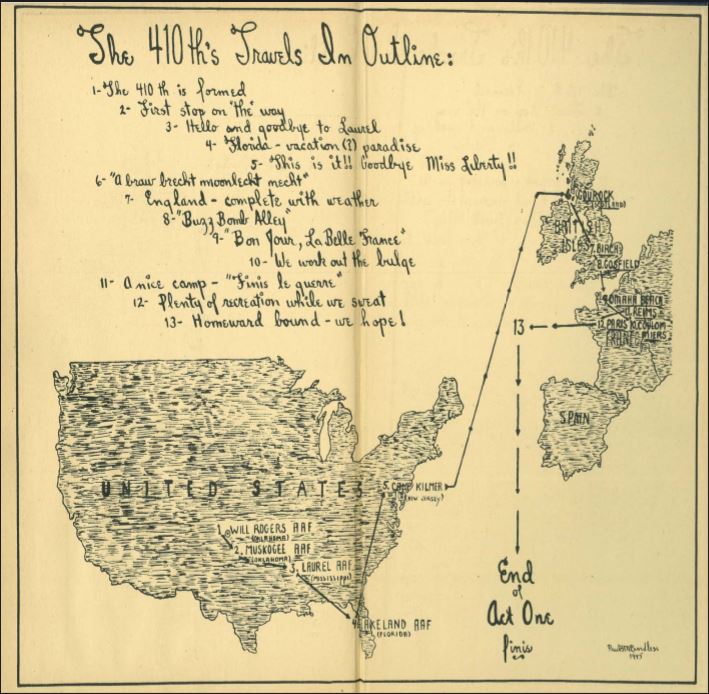 The 410th's Travels In Outline:
1- The 410th is formed
2- First stop on "the" way
3- Hello and goodbye to Laurel
4- Florida - vacation (?) paradise
5- This is it!! Goodbye Miss Liberty!!
6- "A braw brecht moonlecht mecht"
7- England - complete with weather
8- "Buzz Bomb Alley"
9- "Bon Jour, La Belle France"
10- We work out the bulge
11- A nice camp - "Finis le guerre"
12- Plenty of recreation while we sweat
13- Homeward bound - we hope!
6. GOUROCK
(SCOTLAND)
BRITISH
ISLES
7. BIRCH
8. GOSFIELD
9. OMAHA BEACH
11. REIMS
13
12. PARIS
10. COULOM
MIERS
FRANCE
SPAIN
UNITED STATES
5. CAMP KILMER
(NEW JERSEY)
1. WILL ROGERS AAF
(OKLAHOMA)
2. MUSKOGEE AAF
(OKLAHOMA)
3. LAUREL AAF
(MISSISSIPPI)
4. LAKELAND AAF
(FLORIDA)
End
of
Act One
finis
1945